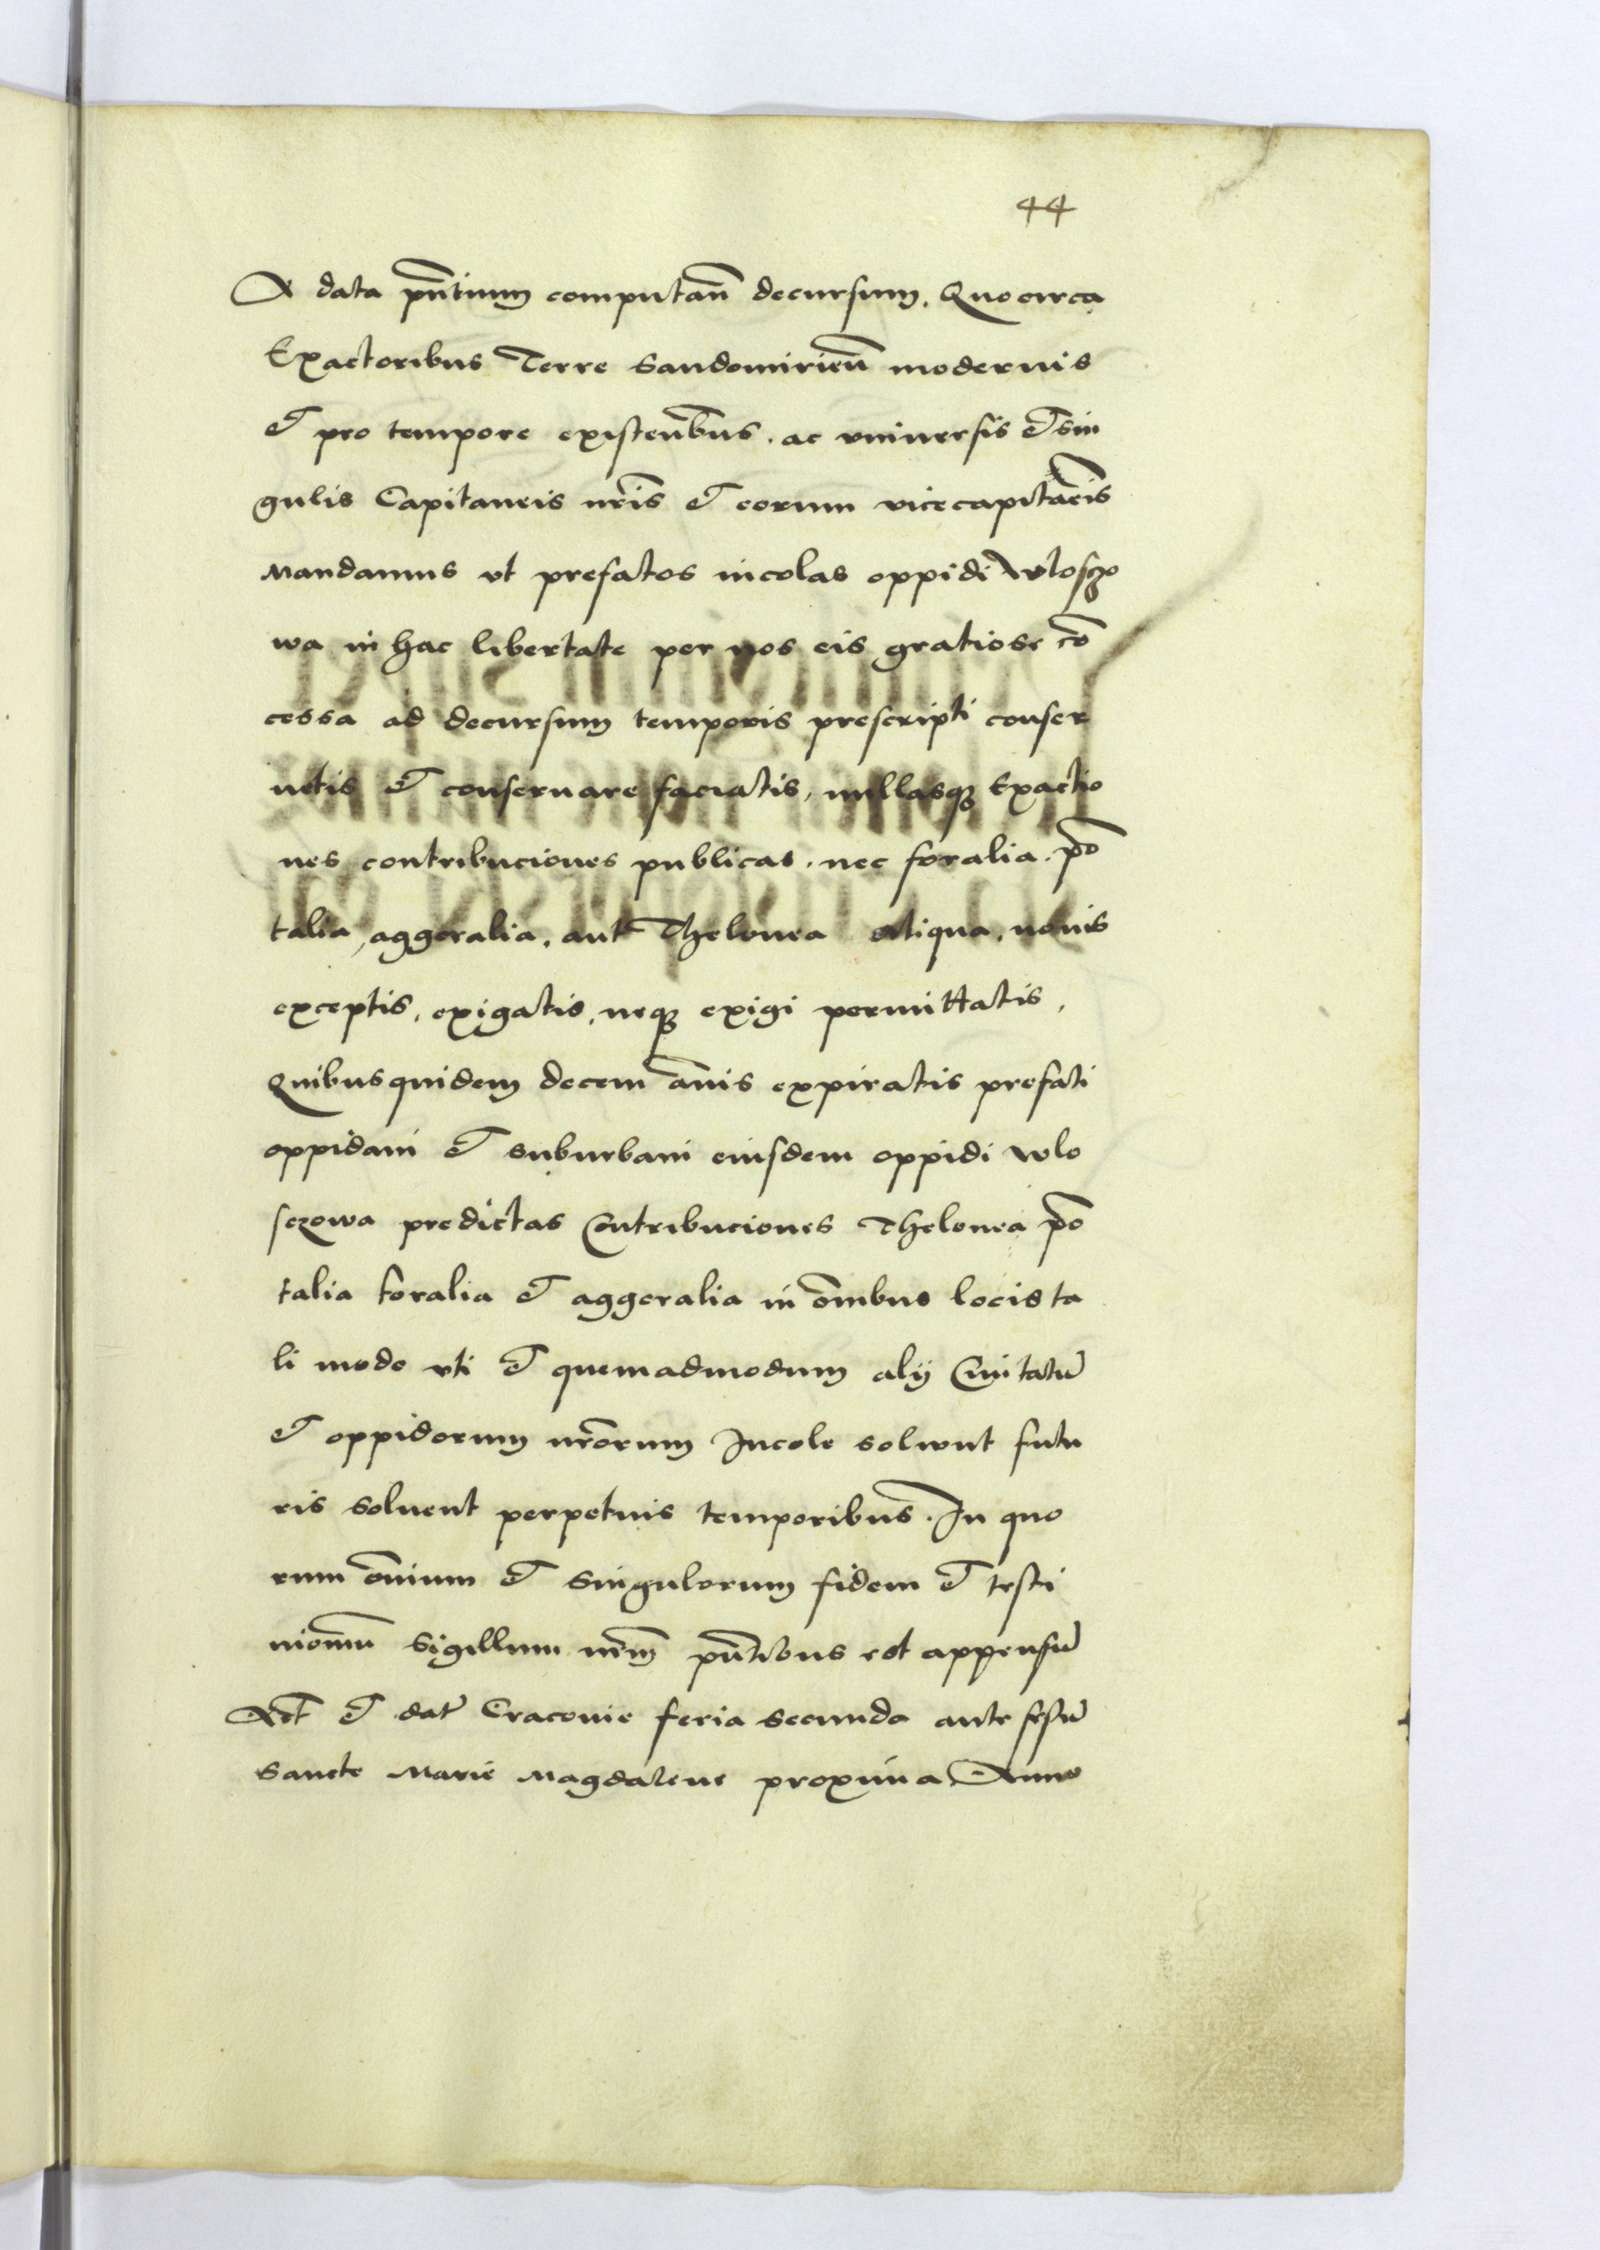 44
A data pñtium computañ decursum. Quocirca
Exactoribus Terre Sandomirień modernis
et pro tempore existeñbus. ac vniuersis et sin
gulis Capitaneis nr̃is et eorum vicecapitãeis
Mandamus vt prefatos incolas oppidi Wloszo
wa in hac libertate per nos eis gratiose cõ
cessa ad decursum temporis prescripti conser
uetis et conseruare faciatis, nullasqꝫ Exactio
nes contribuciones publicas. nec foralia. põ
talia, aggeralia. aut Thelonea aliqua. nouis
exceptis, exigatis, neqꝫ exigi permittatis.
Quibusquidem decem ãnis expiratis prefati
oppidani et suburbani eiusdem oppidi Wlo
sczowa predictas Contribuciones Thelonea põ
talia foralia et aggeralia in õmibus locis ta
li modo vti et quemadmodum alij Ciuitatũ
et oppidorum nr̃orum Incole soluunt futu
ris soluent perpetuis temporibus. In quo
rum õmium et singulorum fidem et testi
moniũ Sigillum nr̃m pñtibus est appensũ
Act et dat Cracouie feria secunda ante festũ
Sancte Marie Magdalene proxima Anno